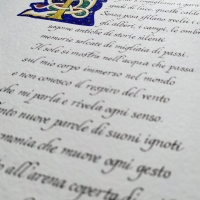 Senza posa sfilano
gli alberi, i campi, le
antiche di storie silenti
memorie solcate di migliaia di passi.
Il sole si mostra nell'acqua che passa
sul mio corpo immerso nel mondo
e non conosco il respiro del vento
che mi parla e rivela ogni senso.
nuove parole di suoni ignoti.
armonia che muove ogni gesto
all'arena coperta di